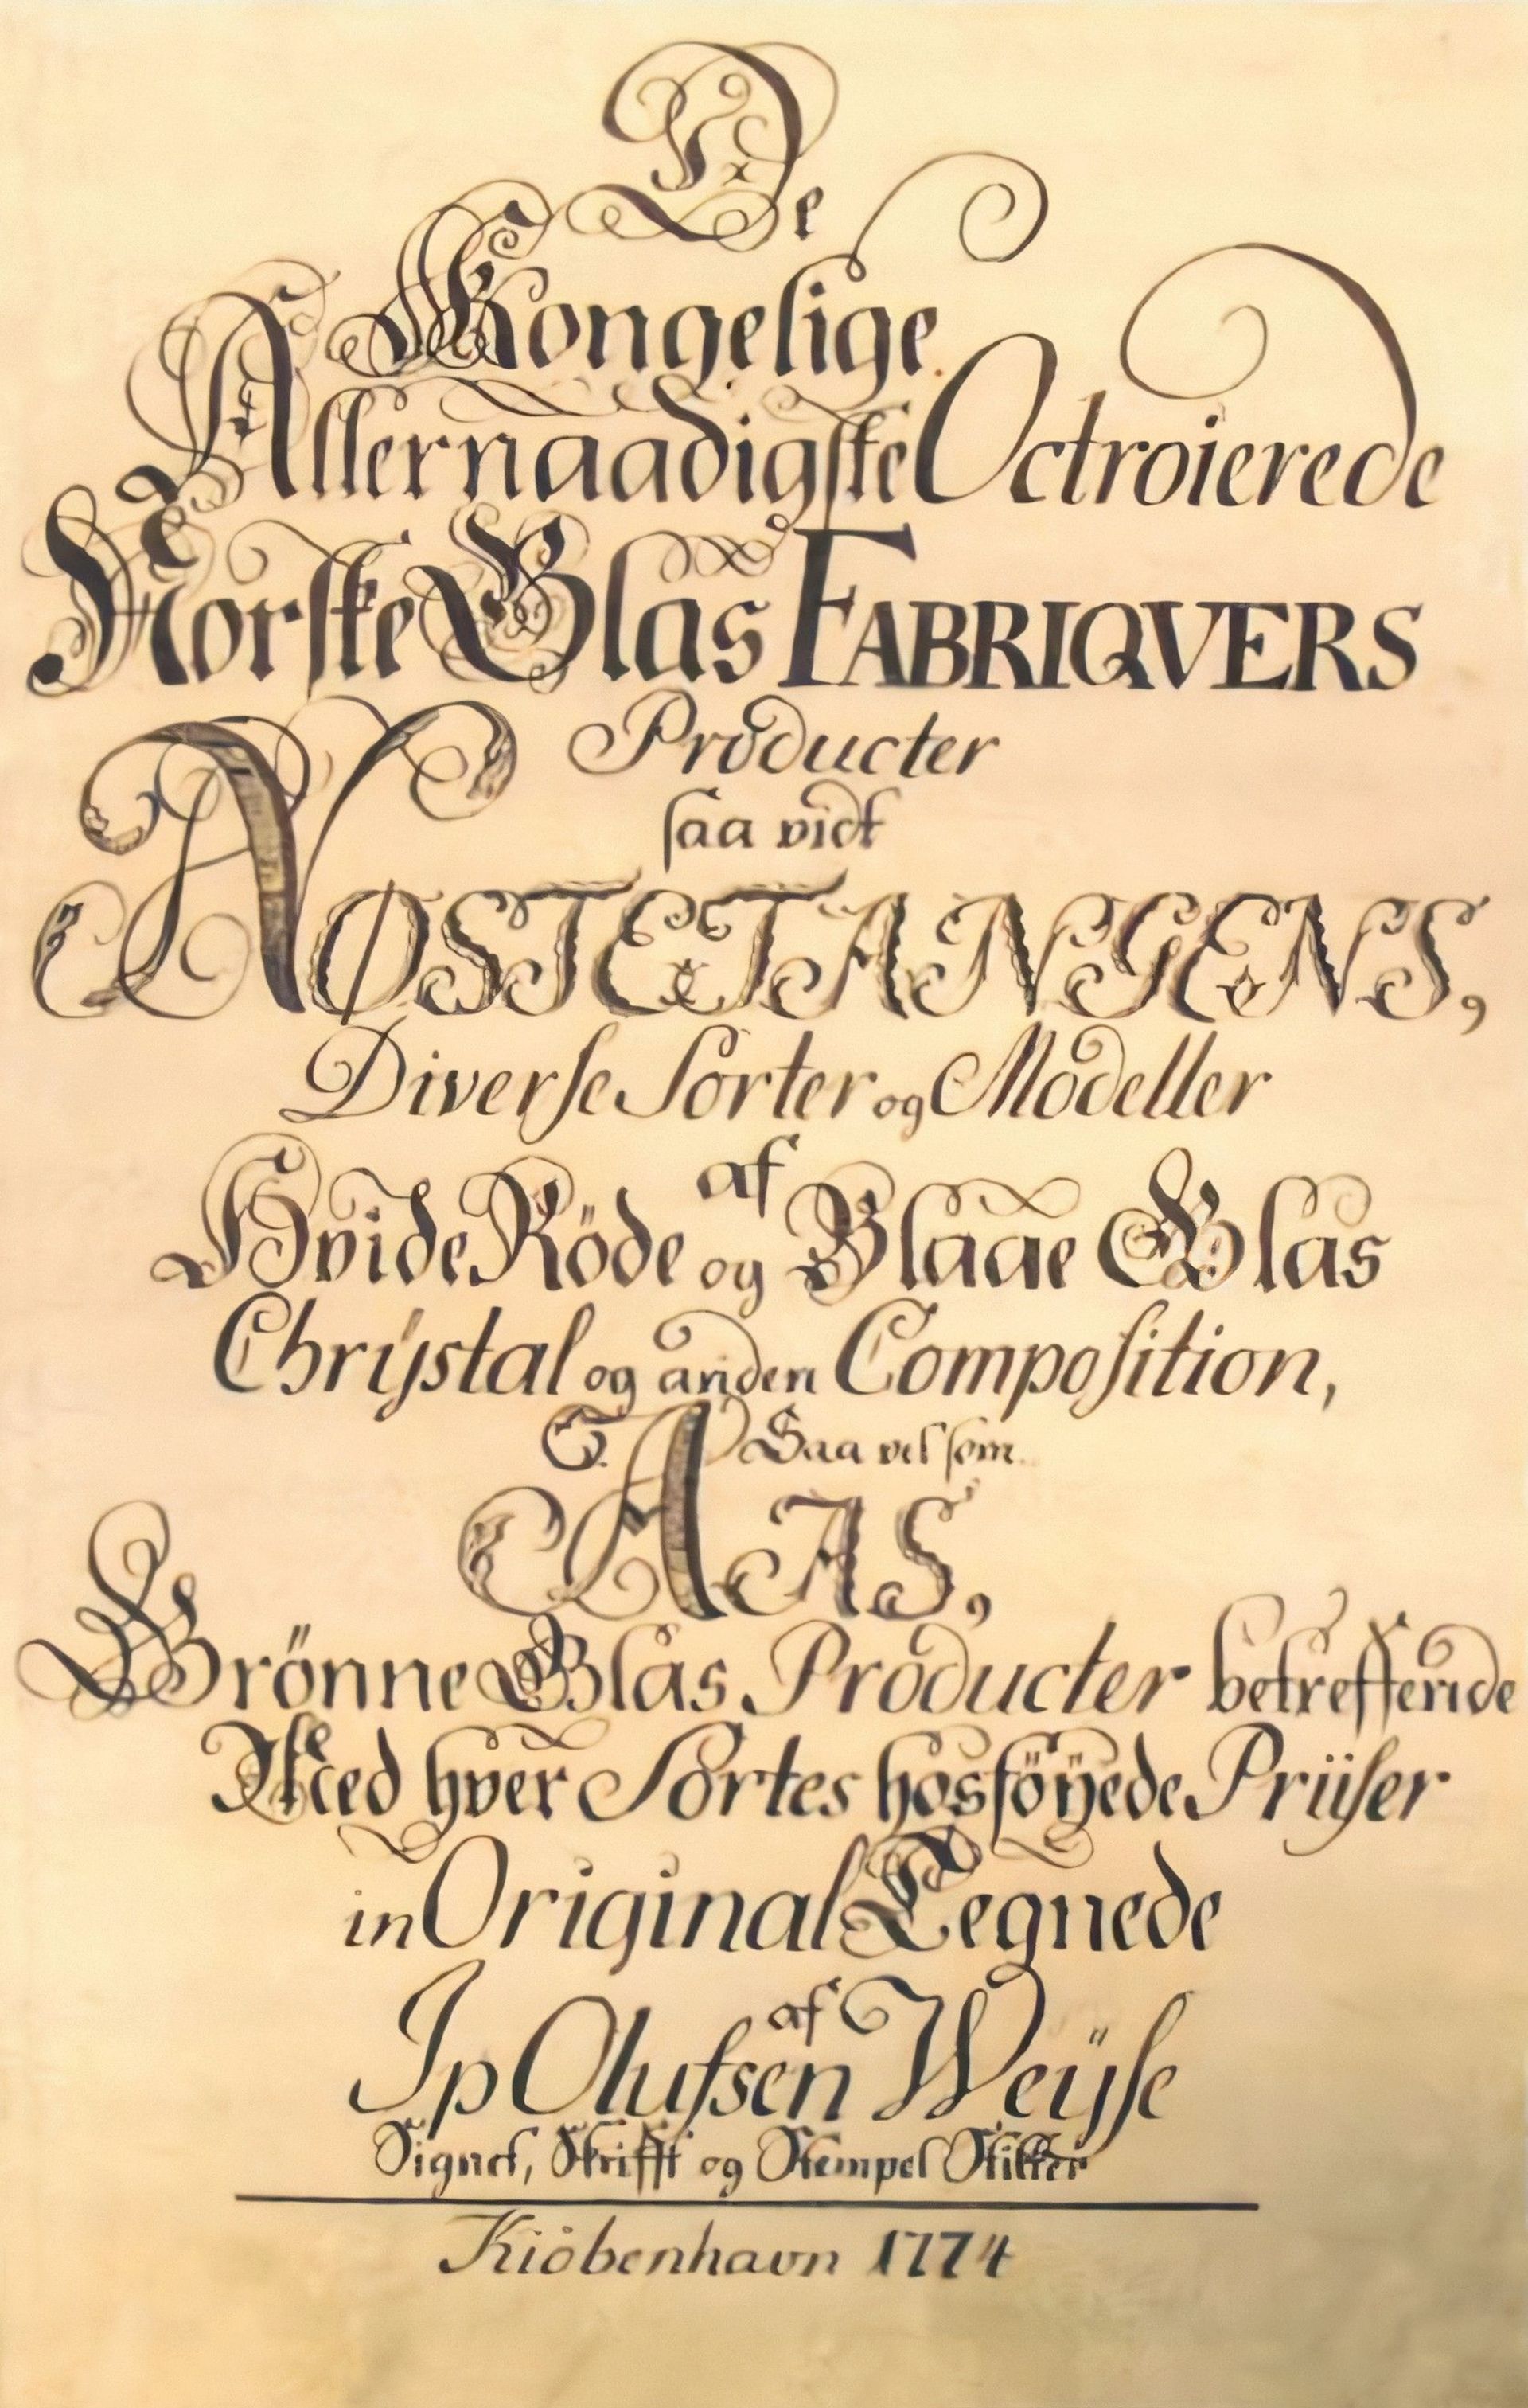 De
Kongelige
Allernaadigſte Octroierede
Norſke Glas FABRIQVERS
Producter
ſaa vidt
NØSTETANGENS,
Diverſe Sorter og Modeller
af
Hvide Röde og Blaae Glas
Chrÿstal og anden Compoſition,
Saa vel ſom
AAS,
Grönne Glas Producter betreffende
Med hver Sortes hosföÿede Priiſer
in Original Tegnede
af
Ip Olufsen Weÿſe
Signet, Skrifft og Stempel Stikker
Kiöbenhavn 1774